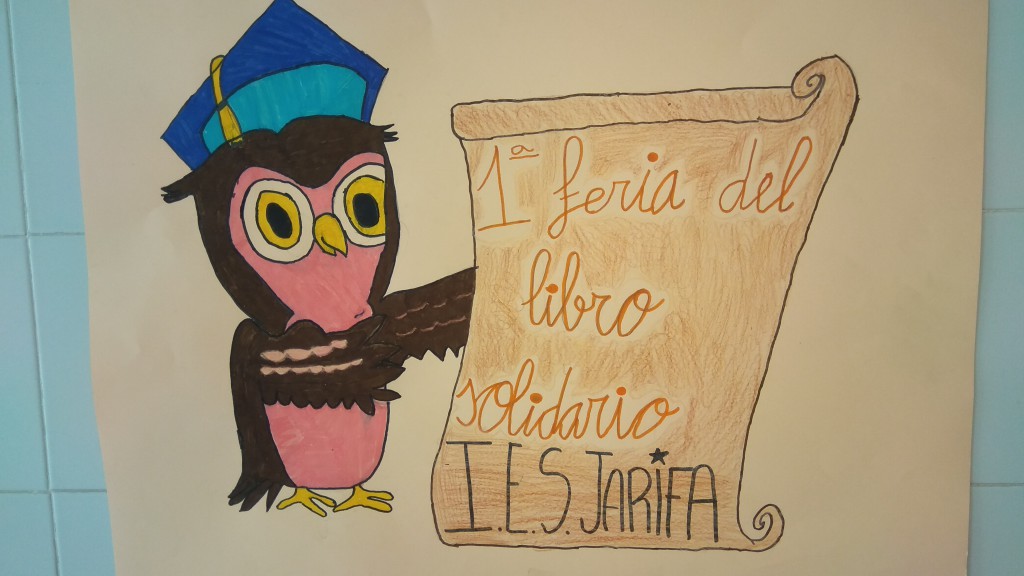 1ª feria del
libro
solidario
I.E.S. JARIFA